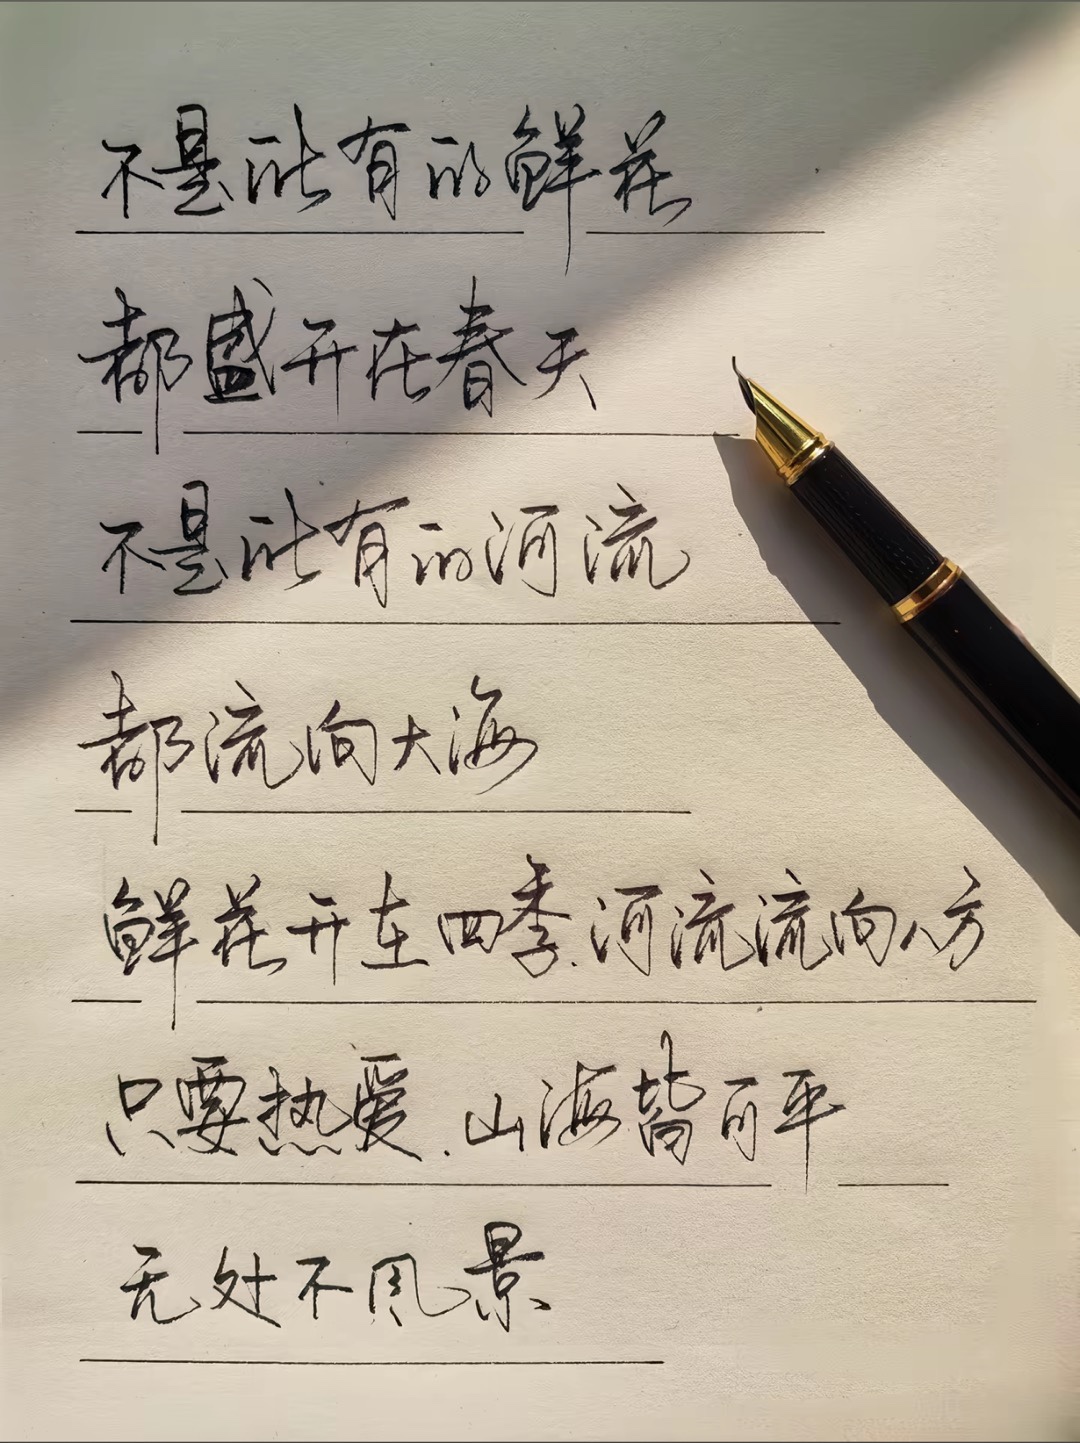 不是所有的鲜花
都盛开在春天
不是所有的河流
都流向大海
鲜花开在四季.河流流向八方
只要热爱.山海皆可平
无处不风景